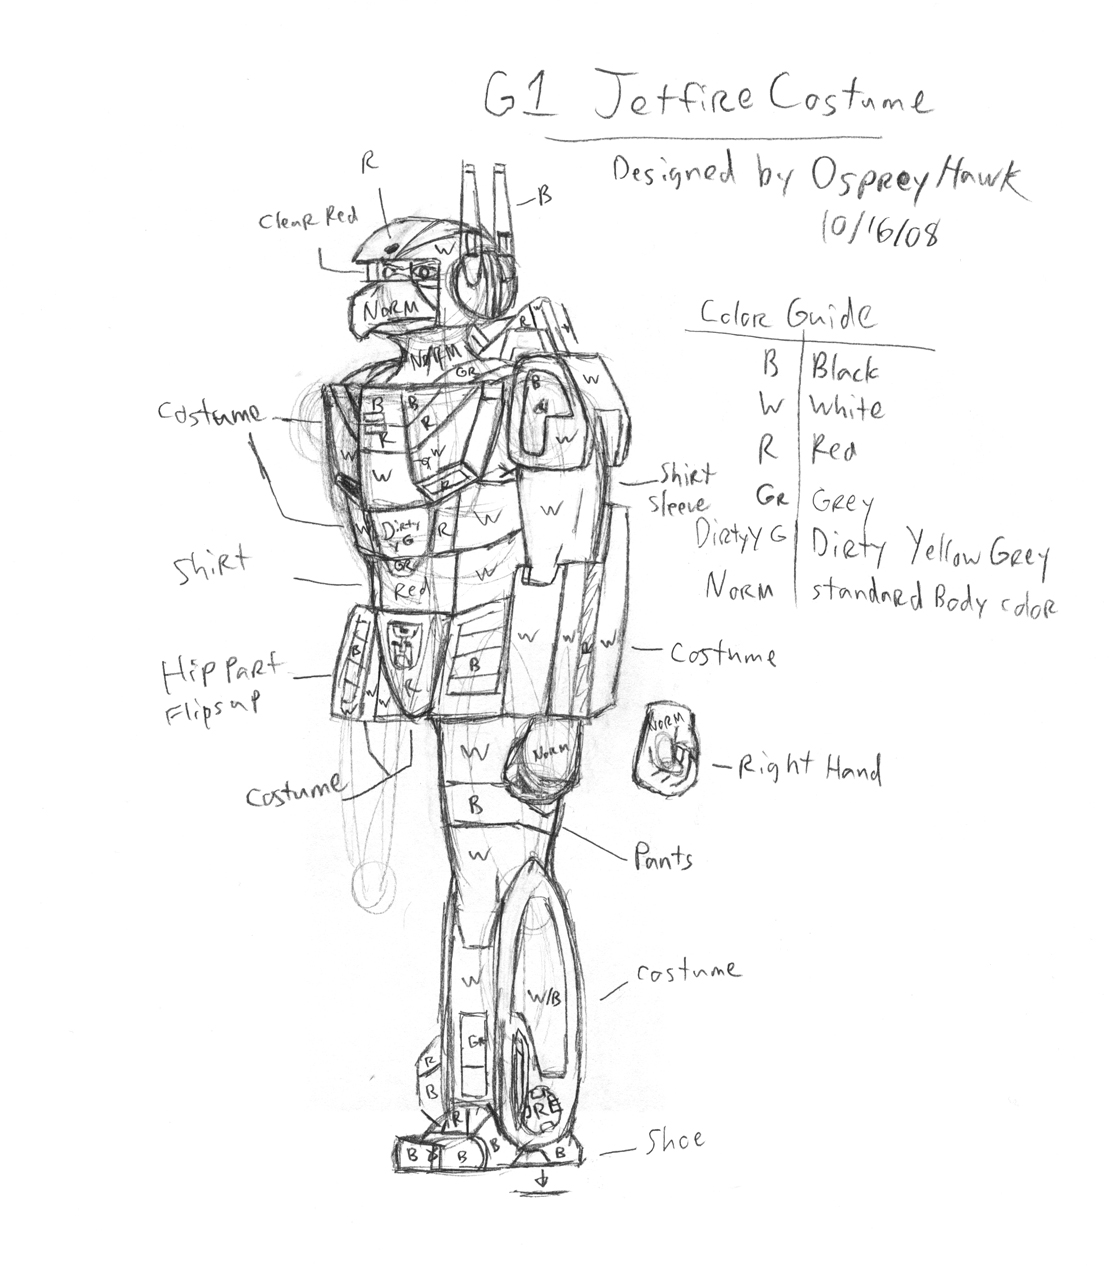 G1 Jetfire Costume
Designed by OspreyHawk
10/16/08
R
B
Clear Red
W
Norm
Norm
Color Guide
B Black
W White
R Red
Gr Grey
DirtyYG Dirty Yellow Grey
Norm standard Body color
R
W
GR
W
B
B
B
R
R
W
W
W
W
R
Costume
Shirt
Sleeve
W
W
Dirty
YG
R
W
GR
Red
W
Shirt
W
W
R
W
Costume
B
B
R
W
W
W
Hip Part
Flips up
W
Norm
Norm
Right Hand
Costume
B
W
Pants
W
W/B
costume
GR
R
B
R
RE
B
B
B
B
Shoe